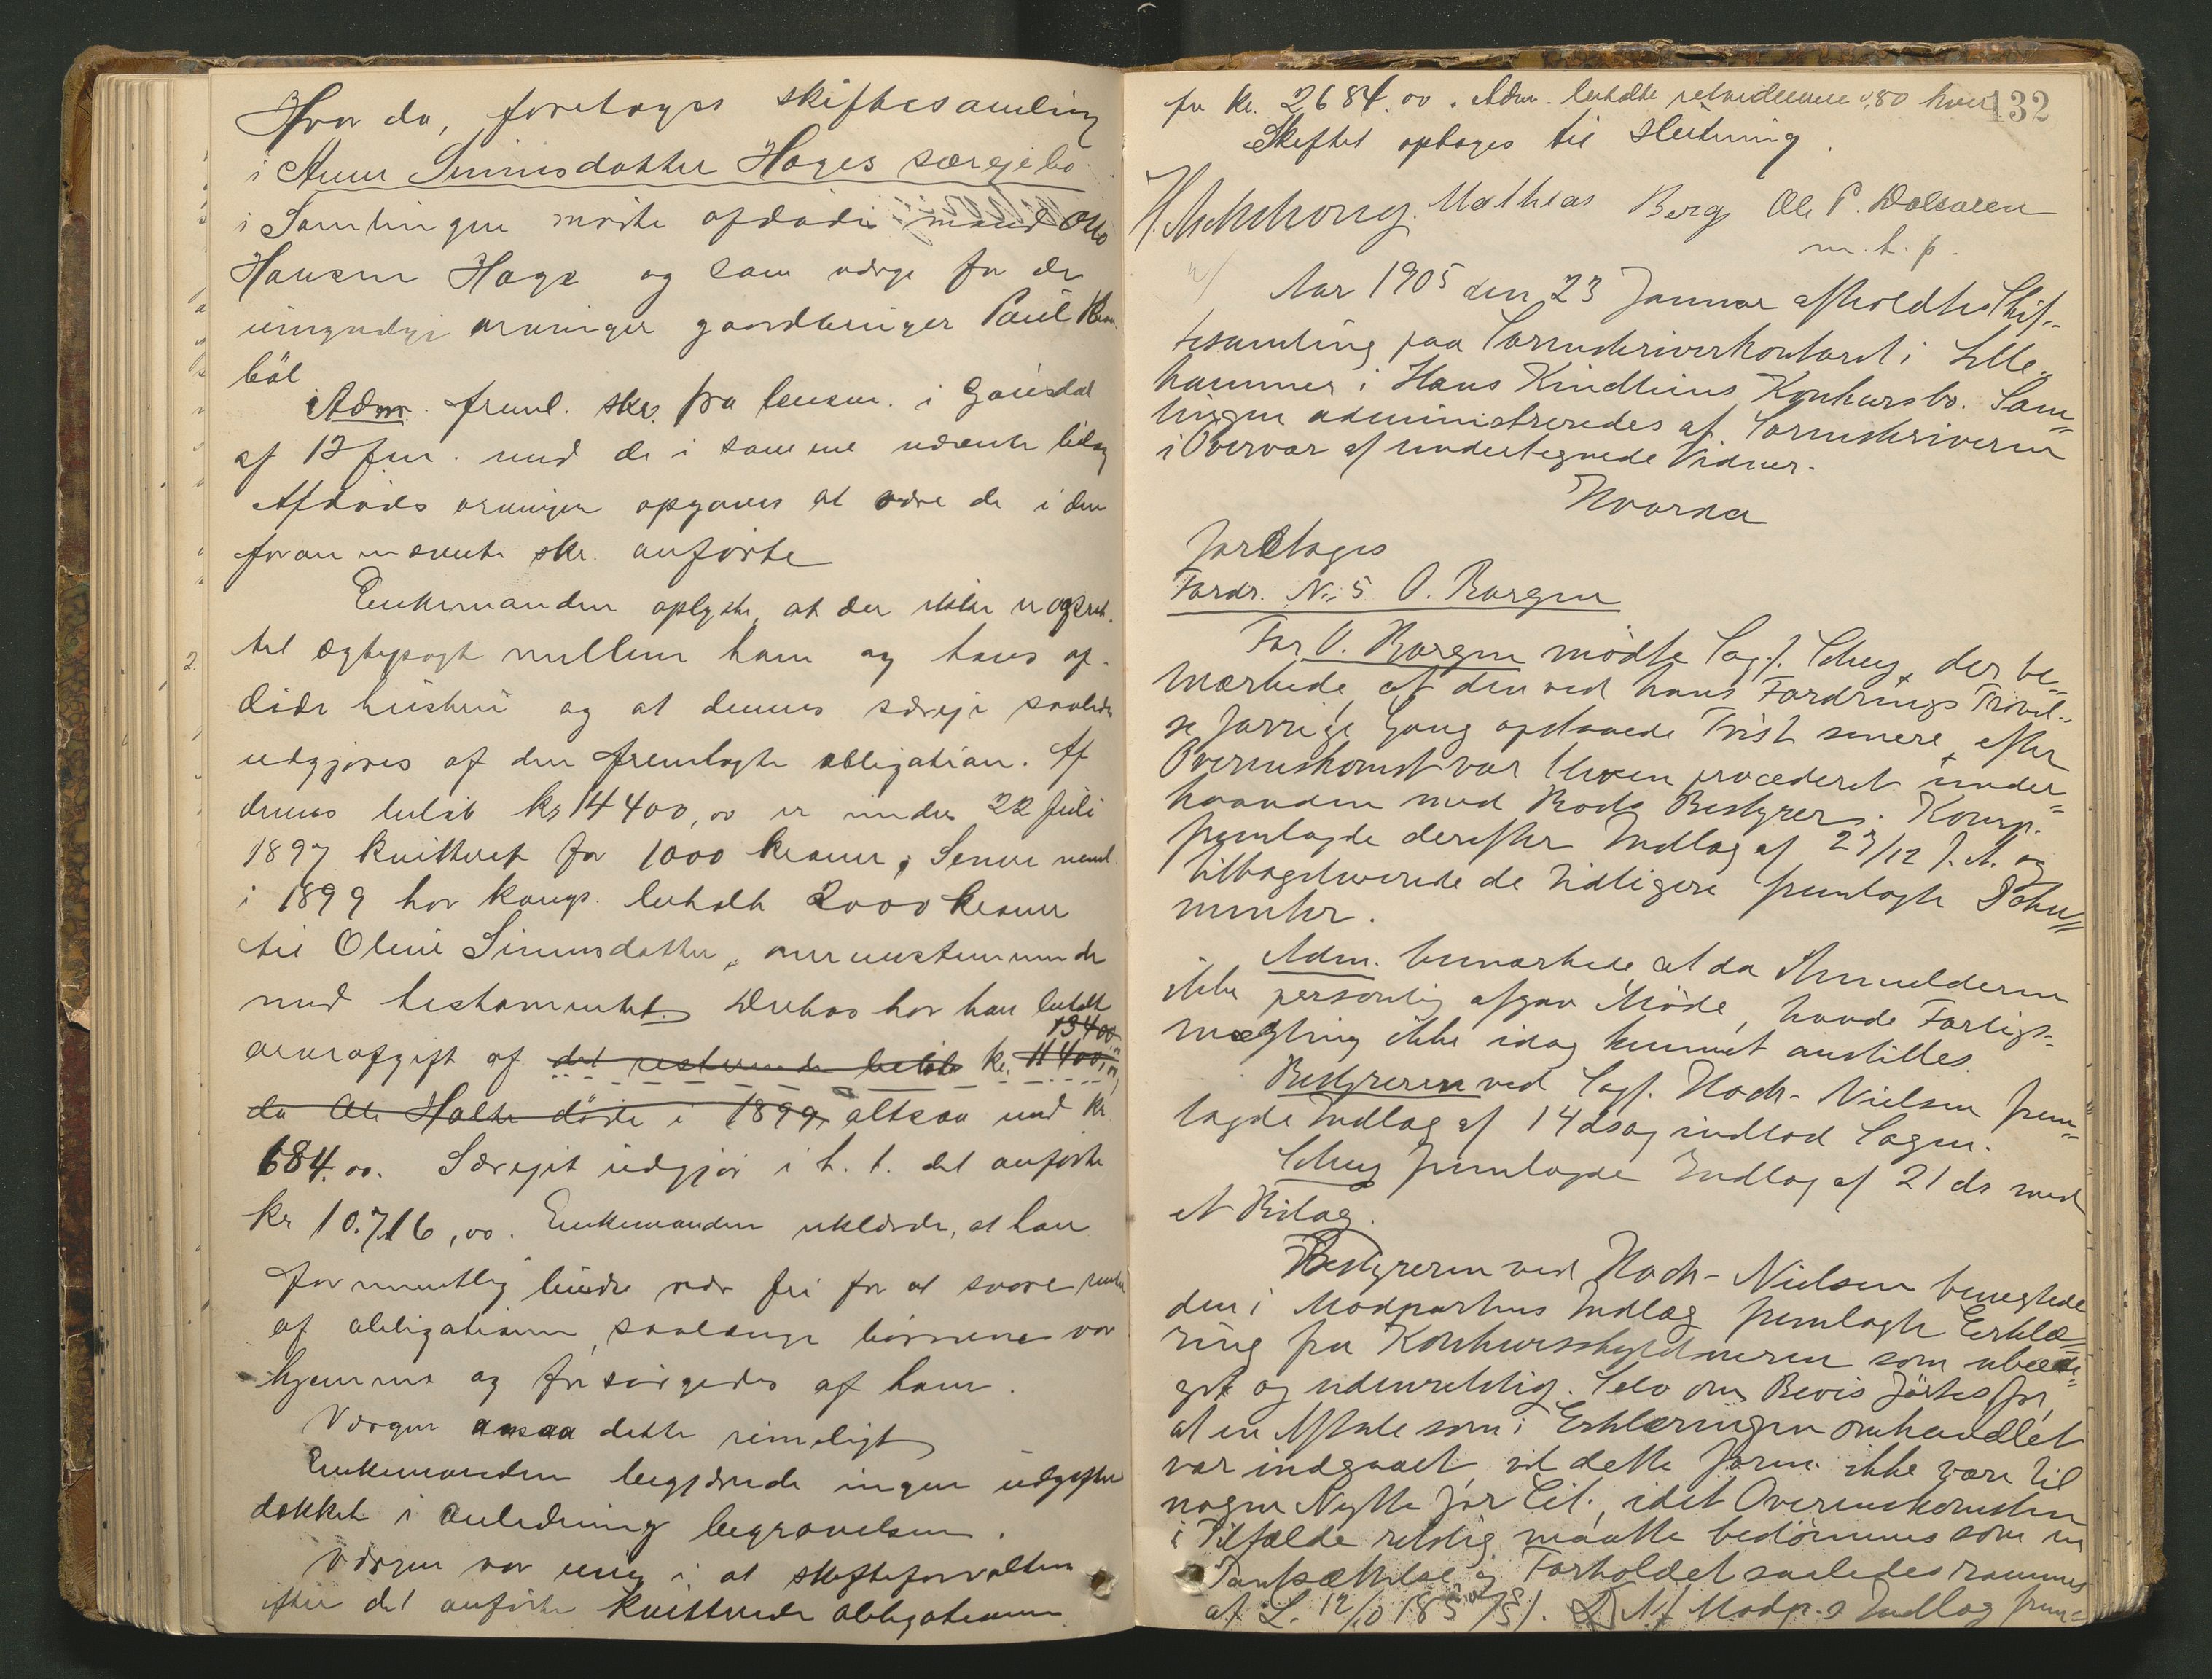 Hvor da, foretoges skiftesamling
i Anne Simensdatter Hages særejebo
i Samlingen mødte afdødes mand Otto
Hansen Hage og som værge for de
umyndige arvinger gaardbruger Paul
böl
Adm. freml. skr. fra lensm. i Gausdal
af 12 jan. med de i samme nævnte bilag
Afdødes arvinger opgaves at være de i den
foran nævnte skr. anførte
Enkemanden oplyste, at der ikke er opret-
tet ægtepagt mellem ham og hans af-
døde hustru og at dennes særeje saaledes
udgjøres af den fremlagte obligation. Af
dennes beløb kr 14400,00 er under 22 Juli
1897 kvitteret for 1000 kroner, Senere neml.
i 1899 har komp. betalt 2000 kroner
til Oline Simensdatter, overensstemmende
med testamentet. Derhos har han betalt
13400
arveafgift af det resterende beløb kr. 11400,
da Ole Holte døde i 1899, altsaa med kr
684.00. Særejet udgjør i h. t. det anførte
kr 10.716,00. Enkemanden erklærde, at han
formentlig burde være fri for at svare renter
af obligationen, saalænge børnene var
hjemme og forsørgedes af ham.
Værgen ansaa dette rimeligt
Enkemanden begjærede ingen udgifter
dækket i anledning begravelsen.
Værgen var enig i at skifteforvalteren
efter det anførte kvitterede obligationen
132
for kr. 2684.00. Adm. betalte retsvidnerne 0,80 hver
Skiftet optages til slutning.
Mathias Berg Ole P. Dalsveen
m. t. p.
Aar 1905 den 23 Januar afholdtes Skif-
tesamling paa Sorenskriverkontoret i Lille-
hammer i Hans Kindlius Konkursbo. Sam-
lingen administreredes af Sorenskriveren
i Overvær af undertegnede Vidner.
Hvorda
foretoges
Fordr. No 5 O. Borgen
For O. Borgen mødte Sagf. Schey, der be-
mærkede, at den ved hans Fordrings Prøvel-
se forrige Gang opstaaede Tvist senere efter
Overenskomst var bleven procederet under-
haanden med Boets Bestyrer. Komp.
fremlagde derefter Indlæg af 23/12 f. A. og
tilbageleverede de tidligere fremlagte Doku-
menter.
Adm. bemærkede at da Anmelderen
ikke personlig afgav Møde, havde Forligs-
mægling ikke idag kunnet anstilles.
Bestyreren ved Sagf. Hoch-Nielsen frem-
lagde Indlæg af 14 ds og indlod Sagen.
Schey fremlagde Indlæg af 21 ds med
et Bilag.
Bestyreren ved Hoch-Nielsen benegtede
den i Modpartens Indlæg fremlagte Erklæ-
ring fra Konkursskyldneren som ubeedi-
get og udenretslig. Selv om Bevis førtes for,
at en Aftale som i Erklæringen omhandlet
var indgaaet, vil dette form. ikke være til
nogen Nytte for Cit., idet Overenskomsten
i Tilfælde retslig maatte bedømmes som en
Pantsættelse og Forholdet saaledes rammes
af L. 12/10 1857 . Af Modp.s Indlæg frem-